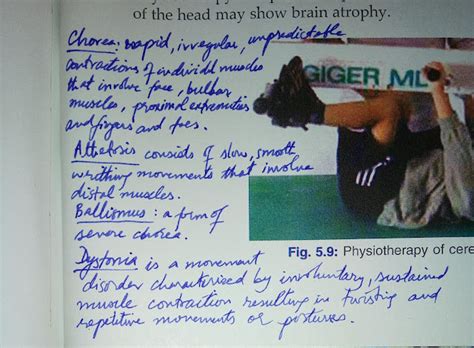 of the head may show brain atrophy.
Chorea: rapid, irregular, unpredictable
contractions of individl muscles
that involve face, bulbar
muscles, proximal extremities
and fingers and toes.
Athetosis consists of slow, smooth
writhing movements that involve
distal muscles.
Ballismus: a form of
severe chorea.
Dystonia is a movement
disorder characterized by involuntary, sustained
muscle contraction resulting in twisting and
repetitive movements or postures.
GIGER MD
Fig. 5.9: Physiotherapy of cere